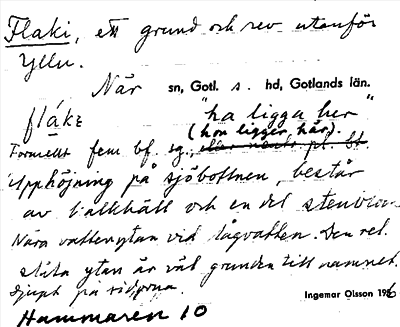 Flaki, ett grund och rev utanför
Yllu.
När sn, Gotl. s. hd, Gotlands län.
flákɛ "ha ligga her"
(hon ligger här).
Formellt fem bf. sg., eller neutr. pl. bf.
Upphöjning på sjöbottnen, består
av kalkhäll och en del
Nära vattenytan vid lågvatten. Den rel.
släta ytan är väl grunden till namnet.
Djupt på sidorna.
Ingemar Olsson 196
Hammaren 10